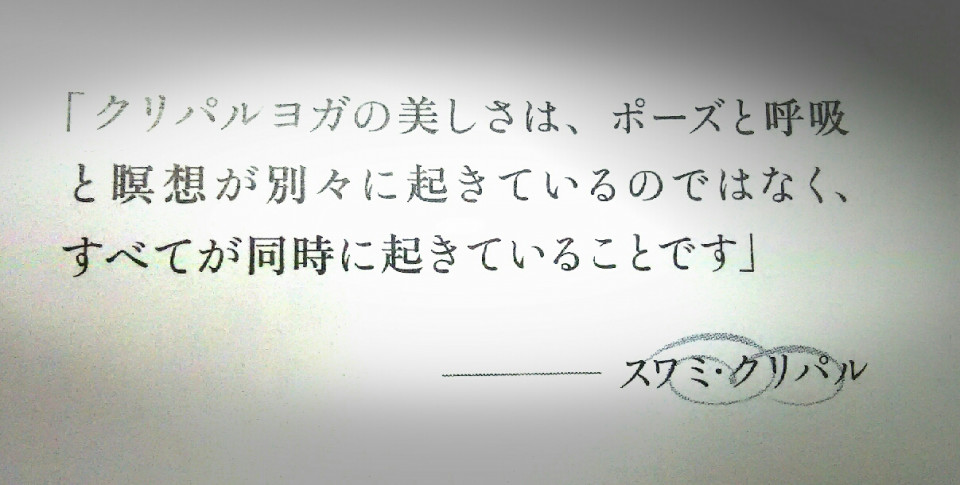 「クリパルヨガの美しさは、ポーズと呼吸
と瞑想が別々に起きているのではなく、
すべてが同時に起きていることです」
――― スワミ・クリパル